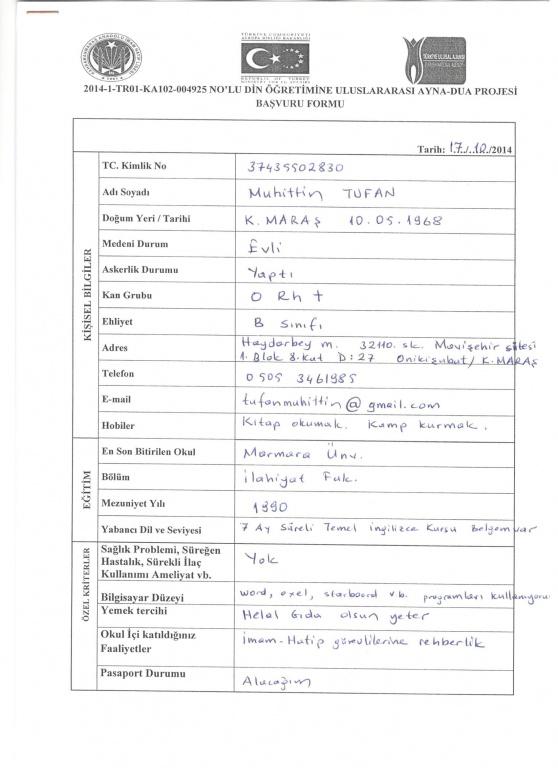 TÜRKİYE CUMHURİYETİ
AVRUPA BİRLİĞİ BAKANLIĞI
REPUBLIC OF TURKEY
MINISTRY FOR EU AFFAIRS
TÜRKİYE ULUSAL AJANSI
2014-1-TR01-KA102-004925 NO'LU DİN ÖĞRETİMİNE ULUSLARARASI AYNA-DUA PROJESİ
BAŞVURU FORMU
Tarih: 17./.12./2014
KİŞİSEL BİLGİLER
TC. Kimlik No 37435502830
Adı Soyadı Muhittin TUFAN
Doğum Yeri / Tarihi K. MARAŞ 10.05.1968
Medeni Durum Evli
Askerlik Durumu Yaptı
Kan Grubu O Rh +
Ehliyet B sınıfı
Adres Haydarbey m. 32110. sk. Mavişehir sitesi
1. Blok 8. Kat D: 27 Onikişubat / K. MARAŞ
Telefon 0505 3461985
E-mail tufanmuhittin@gmail.com
Hobiler Kitap okumak. Kamp kurmak.
EĞİTİM
En Son Bitirilen Okul Marmara Ünv.
Bölüm İlahiyat Fak.
Mezuniyet Yılı 1990
Yabancı Dil ve Seviyesi 7 Ay Süreli Temel ingilizce Kursu Belgem var
ÖZEL KRİTERLER
Sağlık Problemi, Süreğen
Hastalık, Sürekli İlaç
Kullanımı Ameliyat vb. Yok
Bilgisayar Düzeyi word, exel, starboord vb. programları kullanıyoru
Yemek tercihi Helal Gıda olsun yeter
Okul İçi katıldığınız
Faaliyetler İmam-Hatip görevlilerine rehberlik
Pasaport Durumu Alacağım